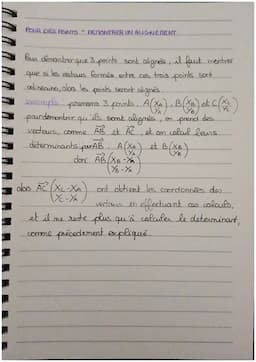 POUR DES POINTS - DEMONTRER UN ALIGNEMENT
Pour démontrer que 3 points sont alignés, il faut montrer
que si les vecteurs formés entre ces trois points sont
colinéaires, alors les points seront alignés.
exemple: prenons 3 points, A(XA YA), B(XB YB) et C(XC YC)
pour démontrer qu'ils sont alignés, on prend des
vecteurs, comme AB et AC, et on calcul leurs
déterminants par AB, A(XA YA) et B(XB YB)
donc AB(XB-XA YB-YA)
alors AC(XC-XA YC-YA) ont obtient les coordonnées des
vecteurs en effectuant ces calculs,
et il ne reste plus qu'à calculer le determinant,
comme précedement expliqué.